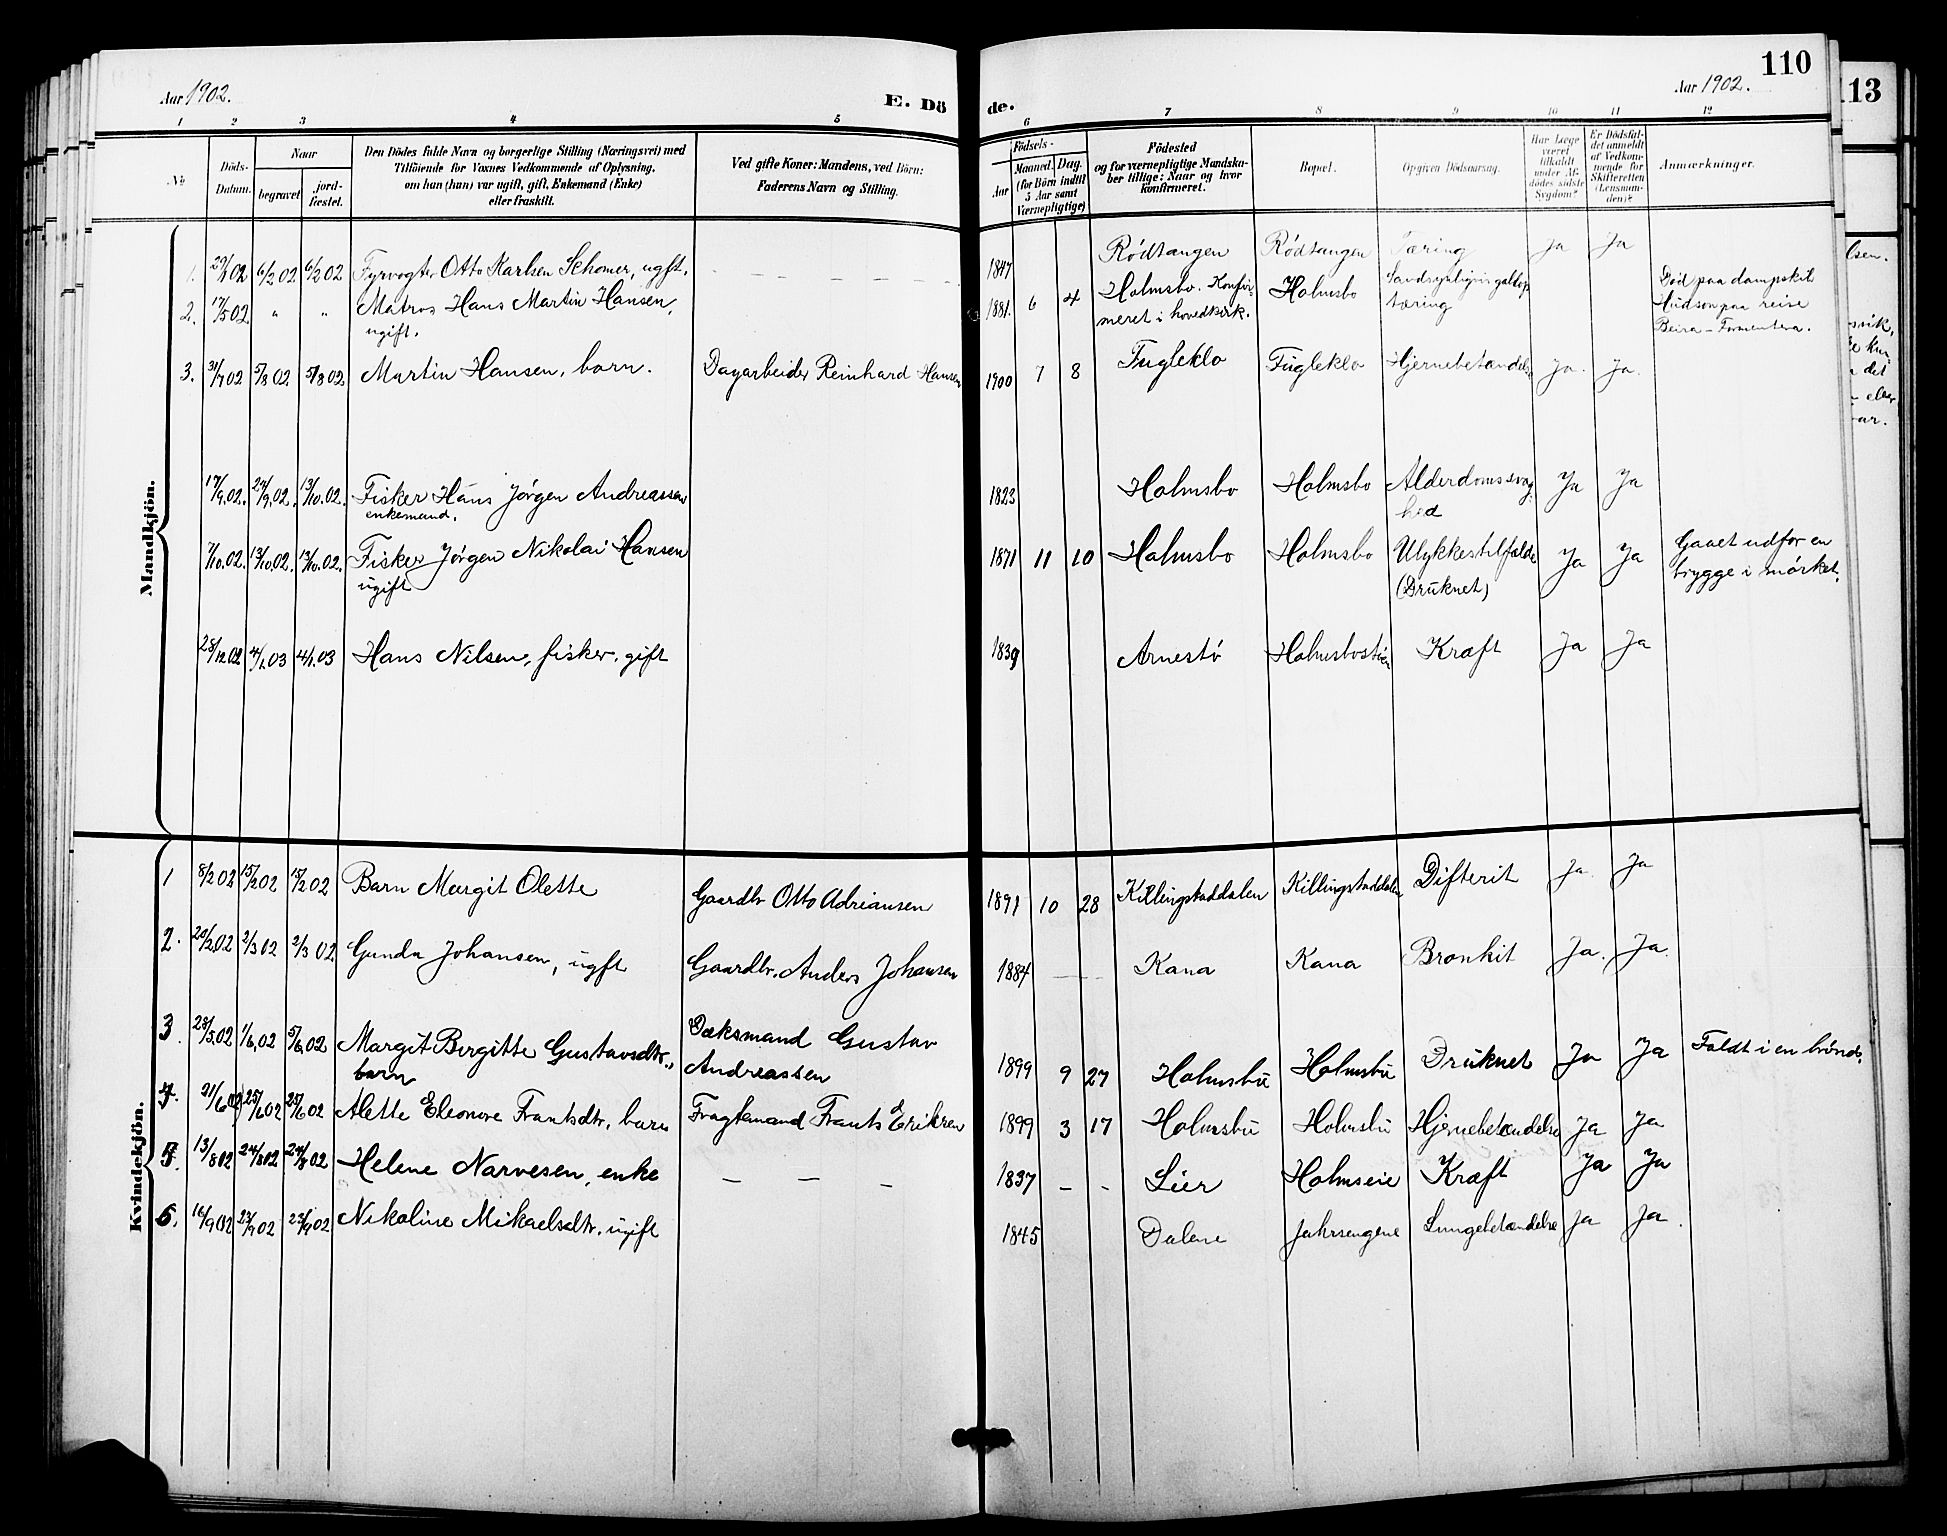 110
Aar 1902.
E. Dö
de.
Aar 1902.
13
1 2 3 4 5 6 7 8 9 10 11 12
No
Döds-
Datum.
Naar
begravet
jord-
fæstet.
Den Dödes fulde Navn og borgerlige Stilling (Næringsvei) med
Tilföiende for Voxnes Vedkommende af Oplysning,
om han (hun) var ugift, gift, Enkemand (Enke)
eller fraskilt.
Ved gifte Koner: Mandens, ved Börn:
Faderens Navn og Stilling.
Födsels-
Aar
Maaned. Dag.
(for Börn indtil
5 Aar samt
Værnepligtige)
Födested
og for værnepligtige Mandska-
ber tillige: Naar og hvor
konfirmeret.
Bopæl.
Opgiven Dödsaarsag.
Har Læge
været
tilkaldt
under Af-
dödes sidste
Sygdom?
Er Dödsfal-
det anmeldt
af Vedkom-
mende for
Skifteretten
(Lensman-
den)?
Anmærkninger.
Mandkjön.
1. 29/1 02 6/2 02 6/2 02 Fyrvogter Otto Karlsen Schomer, ugft. 1847 Rödtangen Rödtangen Tæring Ja Ja
2. 17/5 02 " " Matros Hans Martin Hansen,
ugift.
1881. 6 4 Holmsbo. Konfir-
meret i hovedkirk. Holmsbo
tæring
Död paa dampskib
Hudson paa reise
Beira - Formentera.
3. 31/7 02 5/8 02 5/8 02 Martin Hansen, barn. Dagarbeider Reinhard Hansen 1900 7 8 Fugleklo Fugleklo Hjernebetændelse Ja. Ja.
17/9 02. 24/9 02. 13/10 02. Fisker Hans Jörgen Andreassen
enkemand.
1823 Holmsbo Holmsbo Alderdomssvag-
hed Ja Ja
7/10 02. 13/10 02. 13/10 02. Fisker Jörgen Nikolai Hansen
ugift
1871 11 10 Holmsbo Holmsbo Ulykkestilfælde
(Druknet) Ja Ja Gaaet udfor en
brygge i mörket.
28/12 02 4/1 03 4/1 03 Hans Nilsen, fisker, gift 1839 Arnestö Holmsbostien Kræft Ja Ja
Kvindekjön.
1 8/2 02 15/2 02 15/2 02 Barn Margit Olette Gaardbr Otto Adriansen 1891 10 28 Killingstaddalen Killingstaddalen Difterit Ja. Ja
2. 20/2 02 2/3 02 2/3 02 Gunda Johansen, ugft Gaardbr. Anders Johansen 1884 — — Kana Kana Bronkit Ja. Ja.
3 28/5 02 1/6 02 5/6 02 Margit Birgitte Gustavsdtr.,
barn
Dæksmand Gustav
Andreassen
1899 9 27 Holmsbu Holmsbu Druknet Ja Ja Faldt i en brönd.
4. 21/6 02 25/6 02 25/6 02 Alette Eleonore Frantsdtr, barn Fragtemand Frants Eriksen 1899 3 17 Holmsbu Holmsbu Hjernebetændelse Ja Ja
5. 13/8 02 24/8 02 24/8 02 Helene Narvesen, enke — — — 1837 — - Lier Holmseie Kræft Ja Ja
6. 16/9 02 23/9 02 23/9 02 Nikoline Mikaelsdtr. ugift 1845 Dalene Jahrsengene Lungebetændelse Ja Ja.